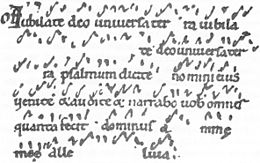 Iubilate deo universa ter ra iubila
te deo universa ter
ra psalmum dicite nomini eius
venite & audite & narrabo vob omnib
quanta fecit dominus a nime
meę alle luia.